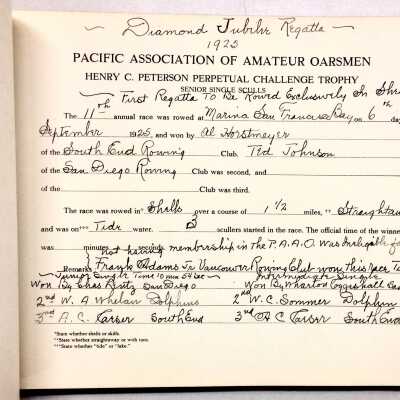 Diamond Jubilee Regatta
1925
PACIFIC ASSOCIATION OF AMATEUR OARSMEN
HENRY C. PETERSON PERPETUAL CHALLENGE TROPHY
SENIOR SINGLE SCULLS
First Regatta To Be Rowed Exclusively In
The 11th annual race was rowed at Marina San Francisco Bay on 6th day
September 1925 and won by Al Horstmeyer
of the South End Rowing Club. Ted Johnson
of the San Diego Rowing Club was second, and
of the Club was third.
The race was rowed in *Shells over a course of 1 1/2 miles, **Straightaw
and was on ***Tide water. 3 scullers started in the race. The official time of the winner
was minutes seconds. not having membership in the P.A.A.O. was Ineligible
Remarks Frank Adams Jr Vancouver Rowing Club won this race
Junior Single Time 10 min 54 sec Intermediate Single
Won By Chas Rintz San Diego Won By Wharton Coggeshall
2nd W. A Whelan Dolphins 2nd W. C. Sommer Dolphin
3rd A. C. South End 3rd A C South End
*State whether shells or skiffs.
**State whether straightaway or with turn.
***State whether "tide" or "lake."